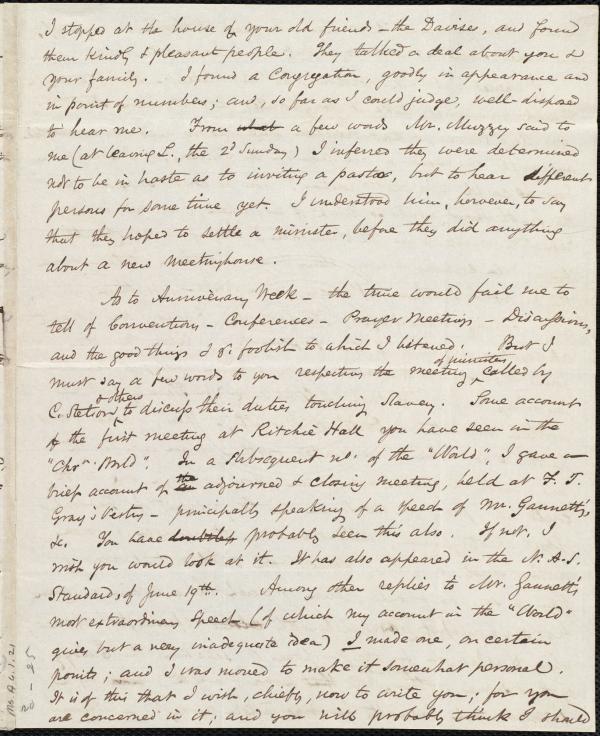 I stopped at the house of your old friends – the Davises, and found
them kindly & pleasant people. They talked a deal about you &
your family. I found a Congregation, goodly in appearance and
in point of numbers; and, so far as I could judge, well-disposed
to hear me. From what a few words Mr. Muzzey said to
me (at leaving L., the 2d Sunday) I inferred they were determined
not to be in haste as to inviting a pastor, but to hear different
persons for some time yet. I understood him, however, to say
that they hoped to settle a minister, before they did anything
about a new meetinghouse.
As to Anniversary Week – the time would fail me to
tell of Conventions – Conferences – Prayer Meetings – Discussions,
and the good things & foolish to which I listened. But I
must say a few words to you respecting the meeting of ministers called by
C. Stetson & others to discuss their duties touching Slavery. Some account
of the first meeting at Ritchie Hall you have seen in the
"Chrn. World". In a subsequent no. of the "World", I gave a
brief account of the adjourned & closing meeting, held at F. T.
Gray's Vestry – principally speaking of a speech of Mr. Gannett's,
&c. You have doubtless probably seen this also. If not, I
wish you would look at it. It has also appeared in the N. A. S.
Standard, of June 19th. Among other replies to Mr. Gannett's
most extraordinary speech (of which my account in the "World"
gives but a very inadequate idea) I made one, on certain
points; and I was moved to make it somewhat personal.
It is of this that I wish, chiefly, now to write you; for you
are concerned in it; and you will probably think I should
Ms. A.